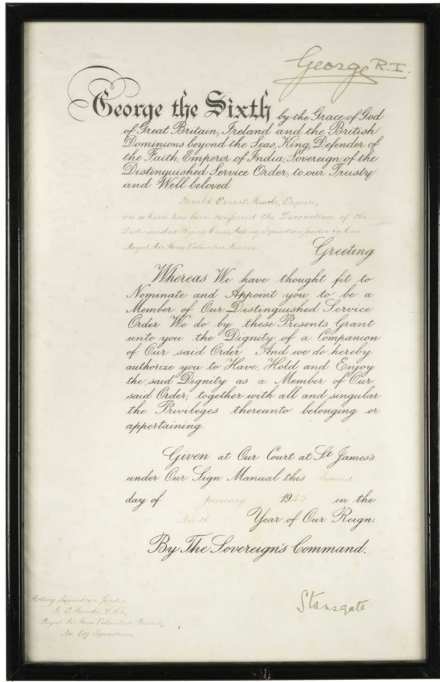 George R.I.
George the Sixth by the Grace of God
of Great Britain, Ireland and the British
Dominions beyond the Seas, King, Defender of
the Faith, Emperor of India, Sovereign of the
Distinguished Service Order, to our Trusty
and Well beloved
Gerald Ernest Esquire,
on whom has been conferred the Decoration of the
Distinguished Flying Cross, Acting Squadron Leader in Our
Royal Air Force Volunteer Reserve
Greeting
Whereas We have thought fit to
Nominate and Appoint you to be a
Member of Our Distinguished Service
Order We do by these Presents Grant
unto you the Dignity of a Companion
of Our said Order And we do hereby
authorize you to Have, Hold and Enjoy
the said Dignity as a Member of Our
said Order, together with all and singular
the Privileges thereunto belonging or
appertaining
Given at Our Court at St James's
under Our Sign Manual this
day of 19 in the
Year of Our Reign.
By The Sovereign's Command.
Stansgate
Royal Air Force Volunteer Reserve,
Squadron